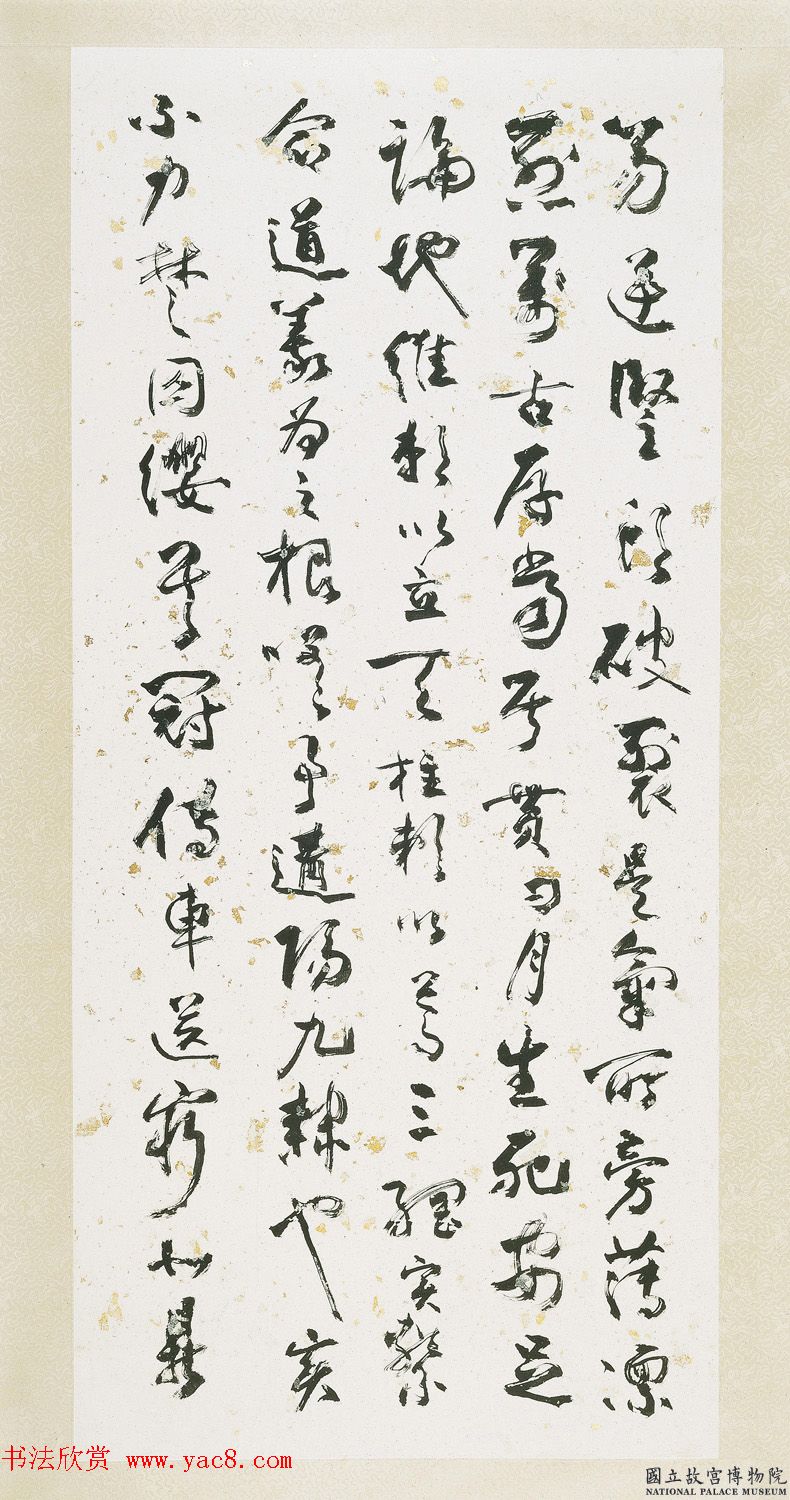 笏逆豎頭破裂是氣所旁薄凛
烈萬古存當其貫日月生死安足
論地維賴以立天柱賴以尊三綱實繫
命道義為之根嗟予遘陽九隸也實
不力楚囚纓其冠傳車送窮北鼎
书法欣赏 www.yac8.com
國立故宮博物院
NATIONAL PALACE MUSEUM